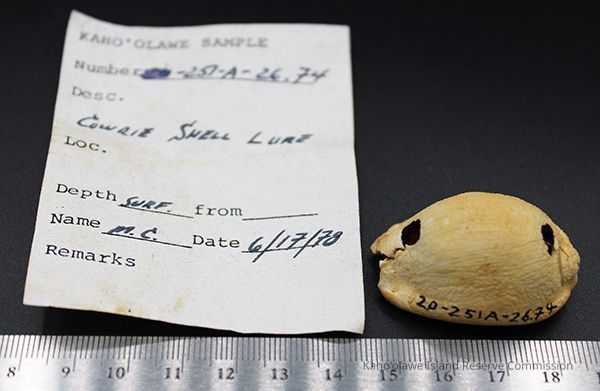 KAHO'OLAWE SAMPLE
Number 20-251-A-26.74
Desc.
COWRIE SHELL LURE
Loc.
Depth SURF. from
Name M.C. Date 6/17/78
Remarks
20-251A-26.74
Kaho'olawe Island Reserve Commission
8 9 10 11 12 13 14 15 16 17 18